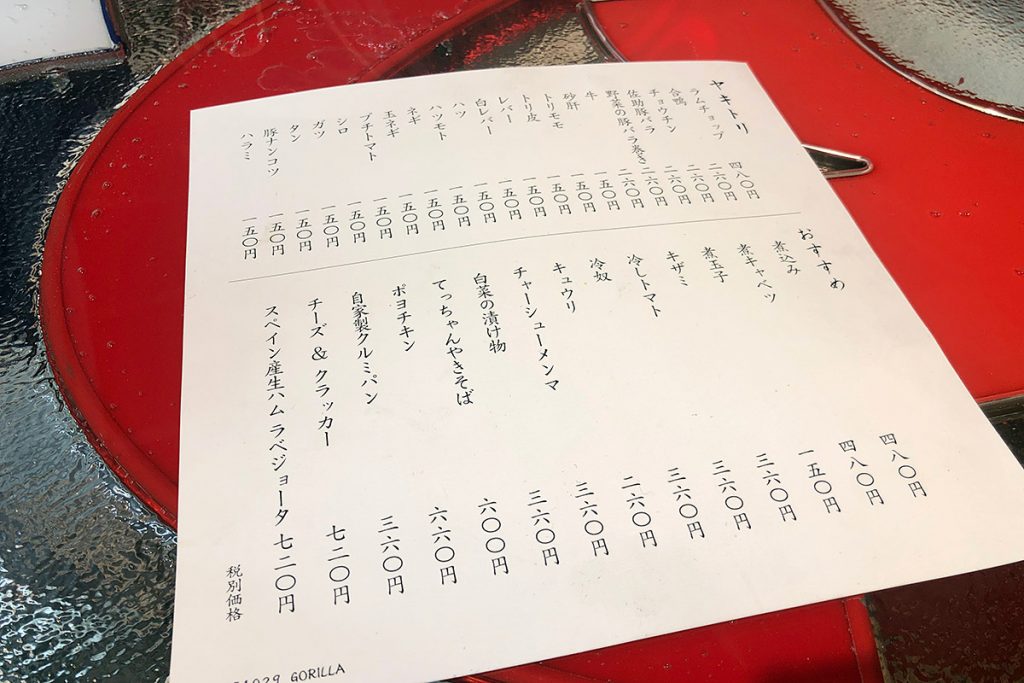 ヤキトリ
ラムチョップ 四八〇円
合鴨 二六〇円
チョウチン 二六〇円
佐助豚バラ 二六〇円
野菜の豚バラ巻き 二六〇円
牛 二六〇円
砂肝 一五〇円
トリモモ 一五〇円
トリ皮 一五〇円
レバー 一五〇円
白レバー 一五〇円
ハツ 一五〇円
ハツモト 一五〇円
ネギ 一五〇円
玉ネギ 一五〇円
プチトマト 一五〇円
シロ 一五〇円
ガツ 一五〇円
タン 一五〇円
豚ナンコツ 一五〇円
ハラミ 一五〇円
おすすめ
煮込み 四八〇円
煮キャベツ 四八〇円
煮玉子 一五〇円
キザミ 三六〇円
冷しトマト 三六〇円
冷奴 三六〇円
キュウリ 二六〇円
チャーシューメンマ 三六〇円
白菜の漬け物 三六〇円
てっちゃんやきそば 六〇〇円
ポヨチキン 六六〇円
自家製クルミパン 三六〇円
チーズ＆クラッカー 七二〇円
スペイン産生ハム ラベジョータ 七二〇円
税別価格
GORILLA